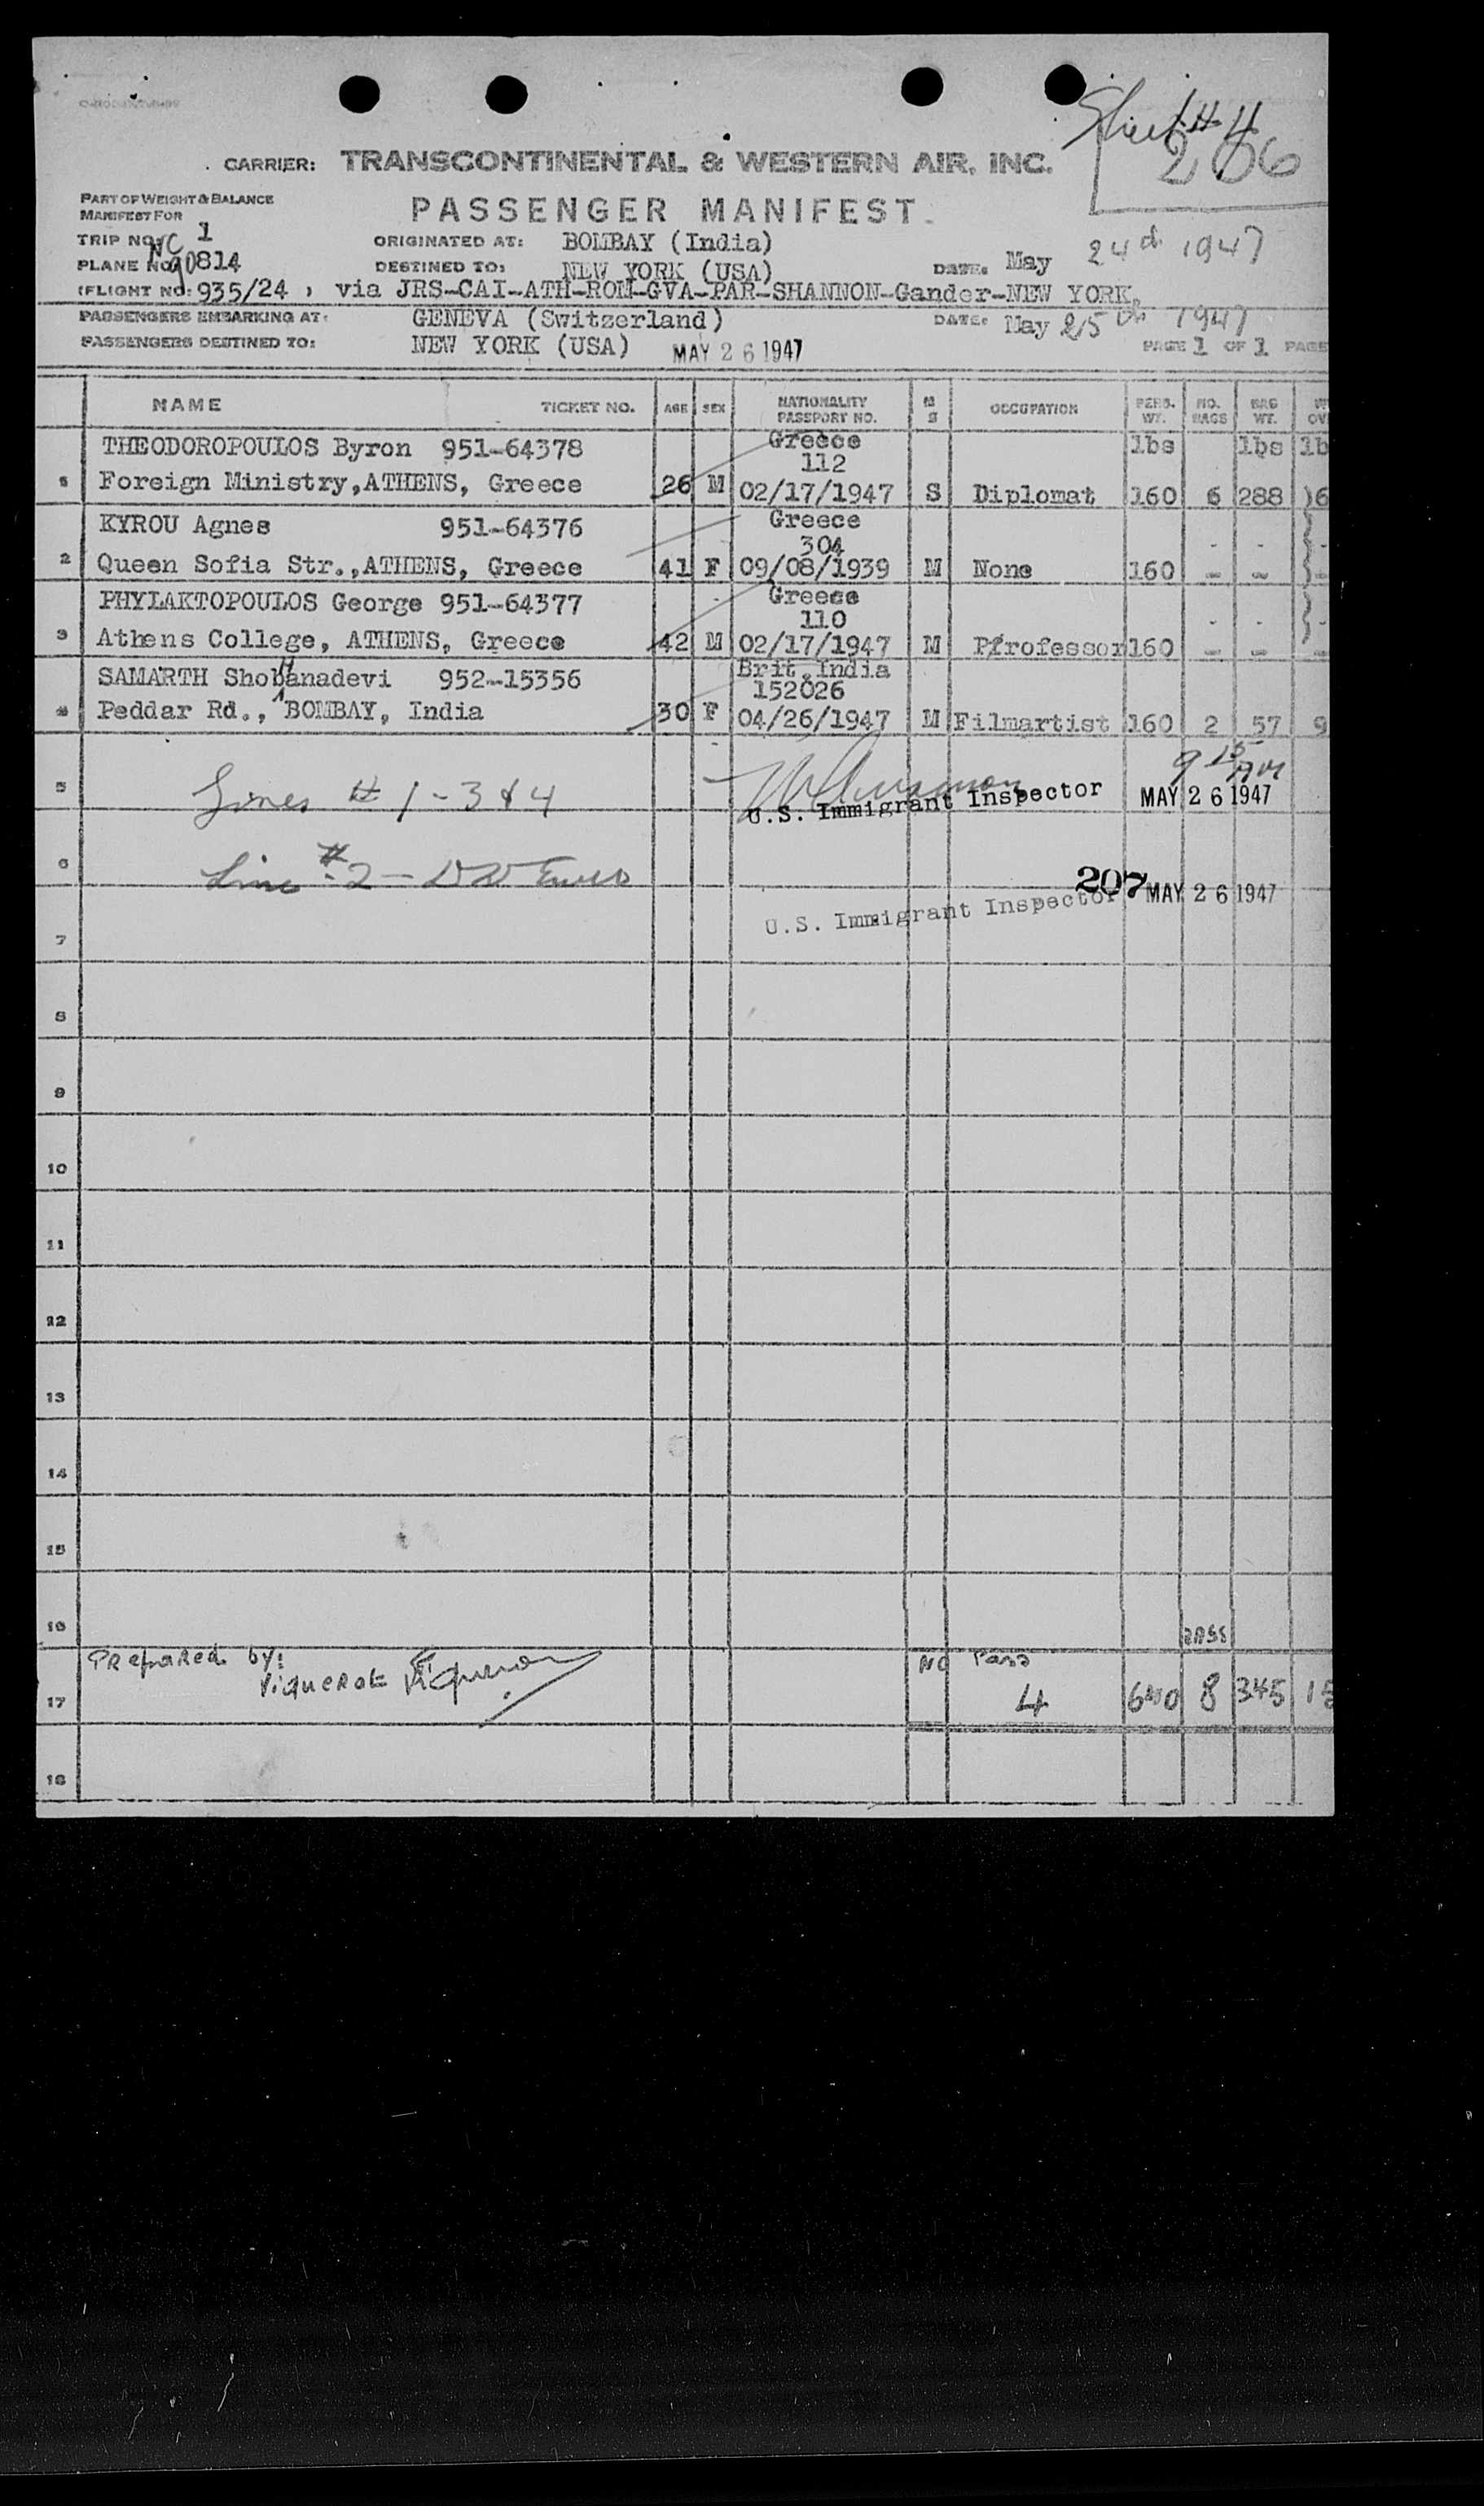 Sheet # 4
206
CARRIER: TRANSCONTINENTAL & WESTERN AIR, INC.
PART OF WEIGHT & BALANCE
MANIFEST FOR
PASSENGER MANIFEST
TRIP NO. 1 ORIGINATED AT: BOMBAY (India)
PLANE NO. NC 90814 DESTINED TO: NEW YORK (USA) DATE: May 24th 1947
(FLIGHT NO: 935/24 , via JRS-CAI-ATH-ROM-GVA-PAR-SHANNON-Gander-NEW YORK.
PASSENGERS EMBARKING AT: GENEVA (Switzerland) DATE: May 25th 1947
PASSENGERS DESTINED TO: NEW YORK (USA) MAY 26 1947 PAGE 1 OF 1 PAGE
NAME TICKET NO. AGE SEX NATIONALITY PASSPORT NO. M S OCCUPATION PERS. WT. NO. BAGS BAG WT.
THEODOROPOULOS Byron 951-64378 Greece lbs lbs lb
112
1 Foreign Ministry,ATHENS, Greece 26 M 02/17/1947 S Diplomat 160 6 288 )6
KYROU Agnes 951-64376 Greece
304 - - -
2 Queen Sofia Str.,ATHENS, Greece 41 F 09/08/1939 M None 160 - - -
PHYLAKTOPOULOS George 951-64377 Greece
110 - - -
3 Athens College, ATHENS, Greece 42 M 02/17/1947 M Pfrofessor 160 - - -
SAMARTH ShobHanadevi 952-15356 Brit.India
152026
4 Peddar Rd., BOMBAY, India 30 F 04/26/1947 M Filmartist 160 2 57 9
9 15 AM
5 Lines # 1-3 & 4 U.S. Immigrant Inspector MAY 26 1947
6 Line # 2 -
207 MAY 26 1947
U.S. Immigrant Inspector
7
8
9
10
11
12
13
14
15
16
Prepared by: No Pass
17 Viquerat 4 640 8 345 15
18